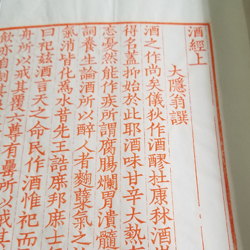 酒經上
大隱翁譔
酒之作尚矣儀狄作酒醪杜康秫酒
得名蓋抑始於此耶酒味甘辛大熱
忘憂然能作疾所謂腐腸爛胃潰髓
詞養生論酒所以醉人者麴糵氣之
氣消皆化為水昔先王誥庶邦庶士
曰祀茲酒言天之命民作酒惟祀而
舟所以戒其覆六尊有罍所以戒其
飲亦